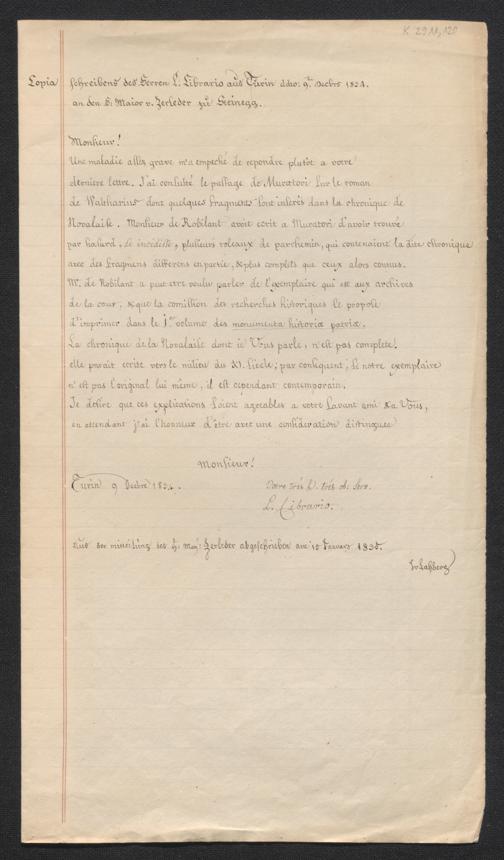 K 2911,120
Copia Schreibens des Herren L. Cibrario aus Turin ddto: 9t Decbrs 1834.
an den H. Maior v. Zerleder zu Steinegg.
Monsieur!
Une maladie assès grave m'a empeché de repondre plutôt a votre
derniere lettre. J'ai consulté le passage de Muratori sur le roman
de Waltharius dont quelques fragments sont inserés dans la chronique de
Novalaise. Monsieur de Robilant avoit ecrit a Muratori d'avoir trouvé
par hasard, plusieurs roleaux de parchemin, qui contenaient la dite chronique
avec des fragmens differens en partie, & plus complets que ceux alors connus.
Mr. de Robilant a peut etre voulu parler de l'exemplaire qui est aux archives
de la cour, & que la comission des recherches historiques se propose
d'imprimer dans le 1er volume des monumenta historiæ patriæ.
La chronique de la Novalaise dont ie Vous parle, n'est pas complete!
elle parait ecrite vers le milieu du XI. siecle; par consequent, si notre exemplaire
n'est pas l'original lui même, il est cependant contemporain.
Je desire que ces explications soient agreables a votre savant ami & a Vous,
en attendant j'ai l'honneur d'être avec une consideration distinguée
Monsieur!
Turin 9 Decbre 1834.
Votre très h. très ob. serv.
L. Cibrario.
aus der mitteilung des H: Maj: Zerleder abgeschrieben am 15 Januars 1835.
JvLaßberg